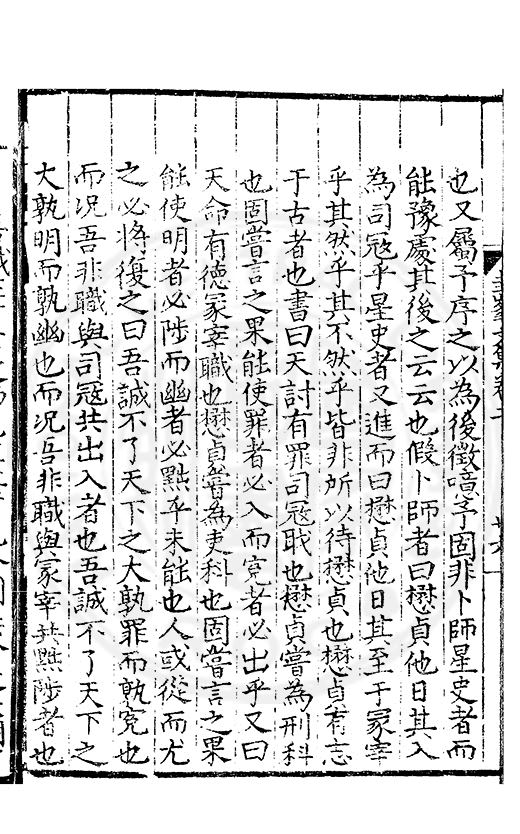 也又屬予序之以為後徵噫予固非卜師星史者而
能豫處其後之云云也假卜師者曰懋貞他日其入
為司寇乎星史者又進而曰懋貞他日其至于冡宰
乎其然乎其不然乎皆非所以待懋貞也懋貞有志
于古者也書曰天討有罪司寇職也懋貞嘗為刑科
也固嘗言之果能使罪者必入而寃者必出乎又曰
天命有德冡宰職也懋貞嘗為吏科也固嘗言之果
能使明者必陟而幽者必黜乎未能也人或從而尤
之必將復之曰吾誠不了天下之大孰罪而孰寃也
而况吾非職與司寇共出入者也吾誠不了天下之
大孰明而孰幽也而况吾非職與冡宰共黜陟者也